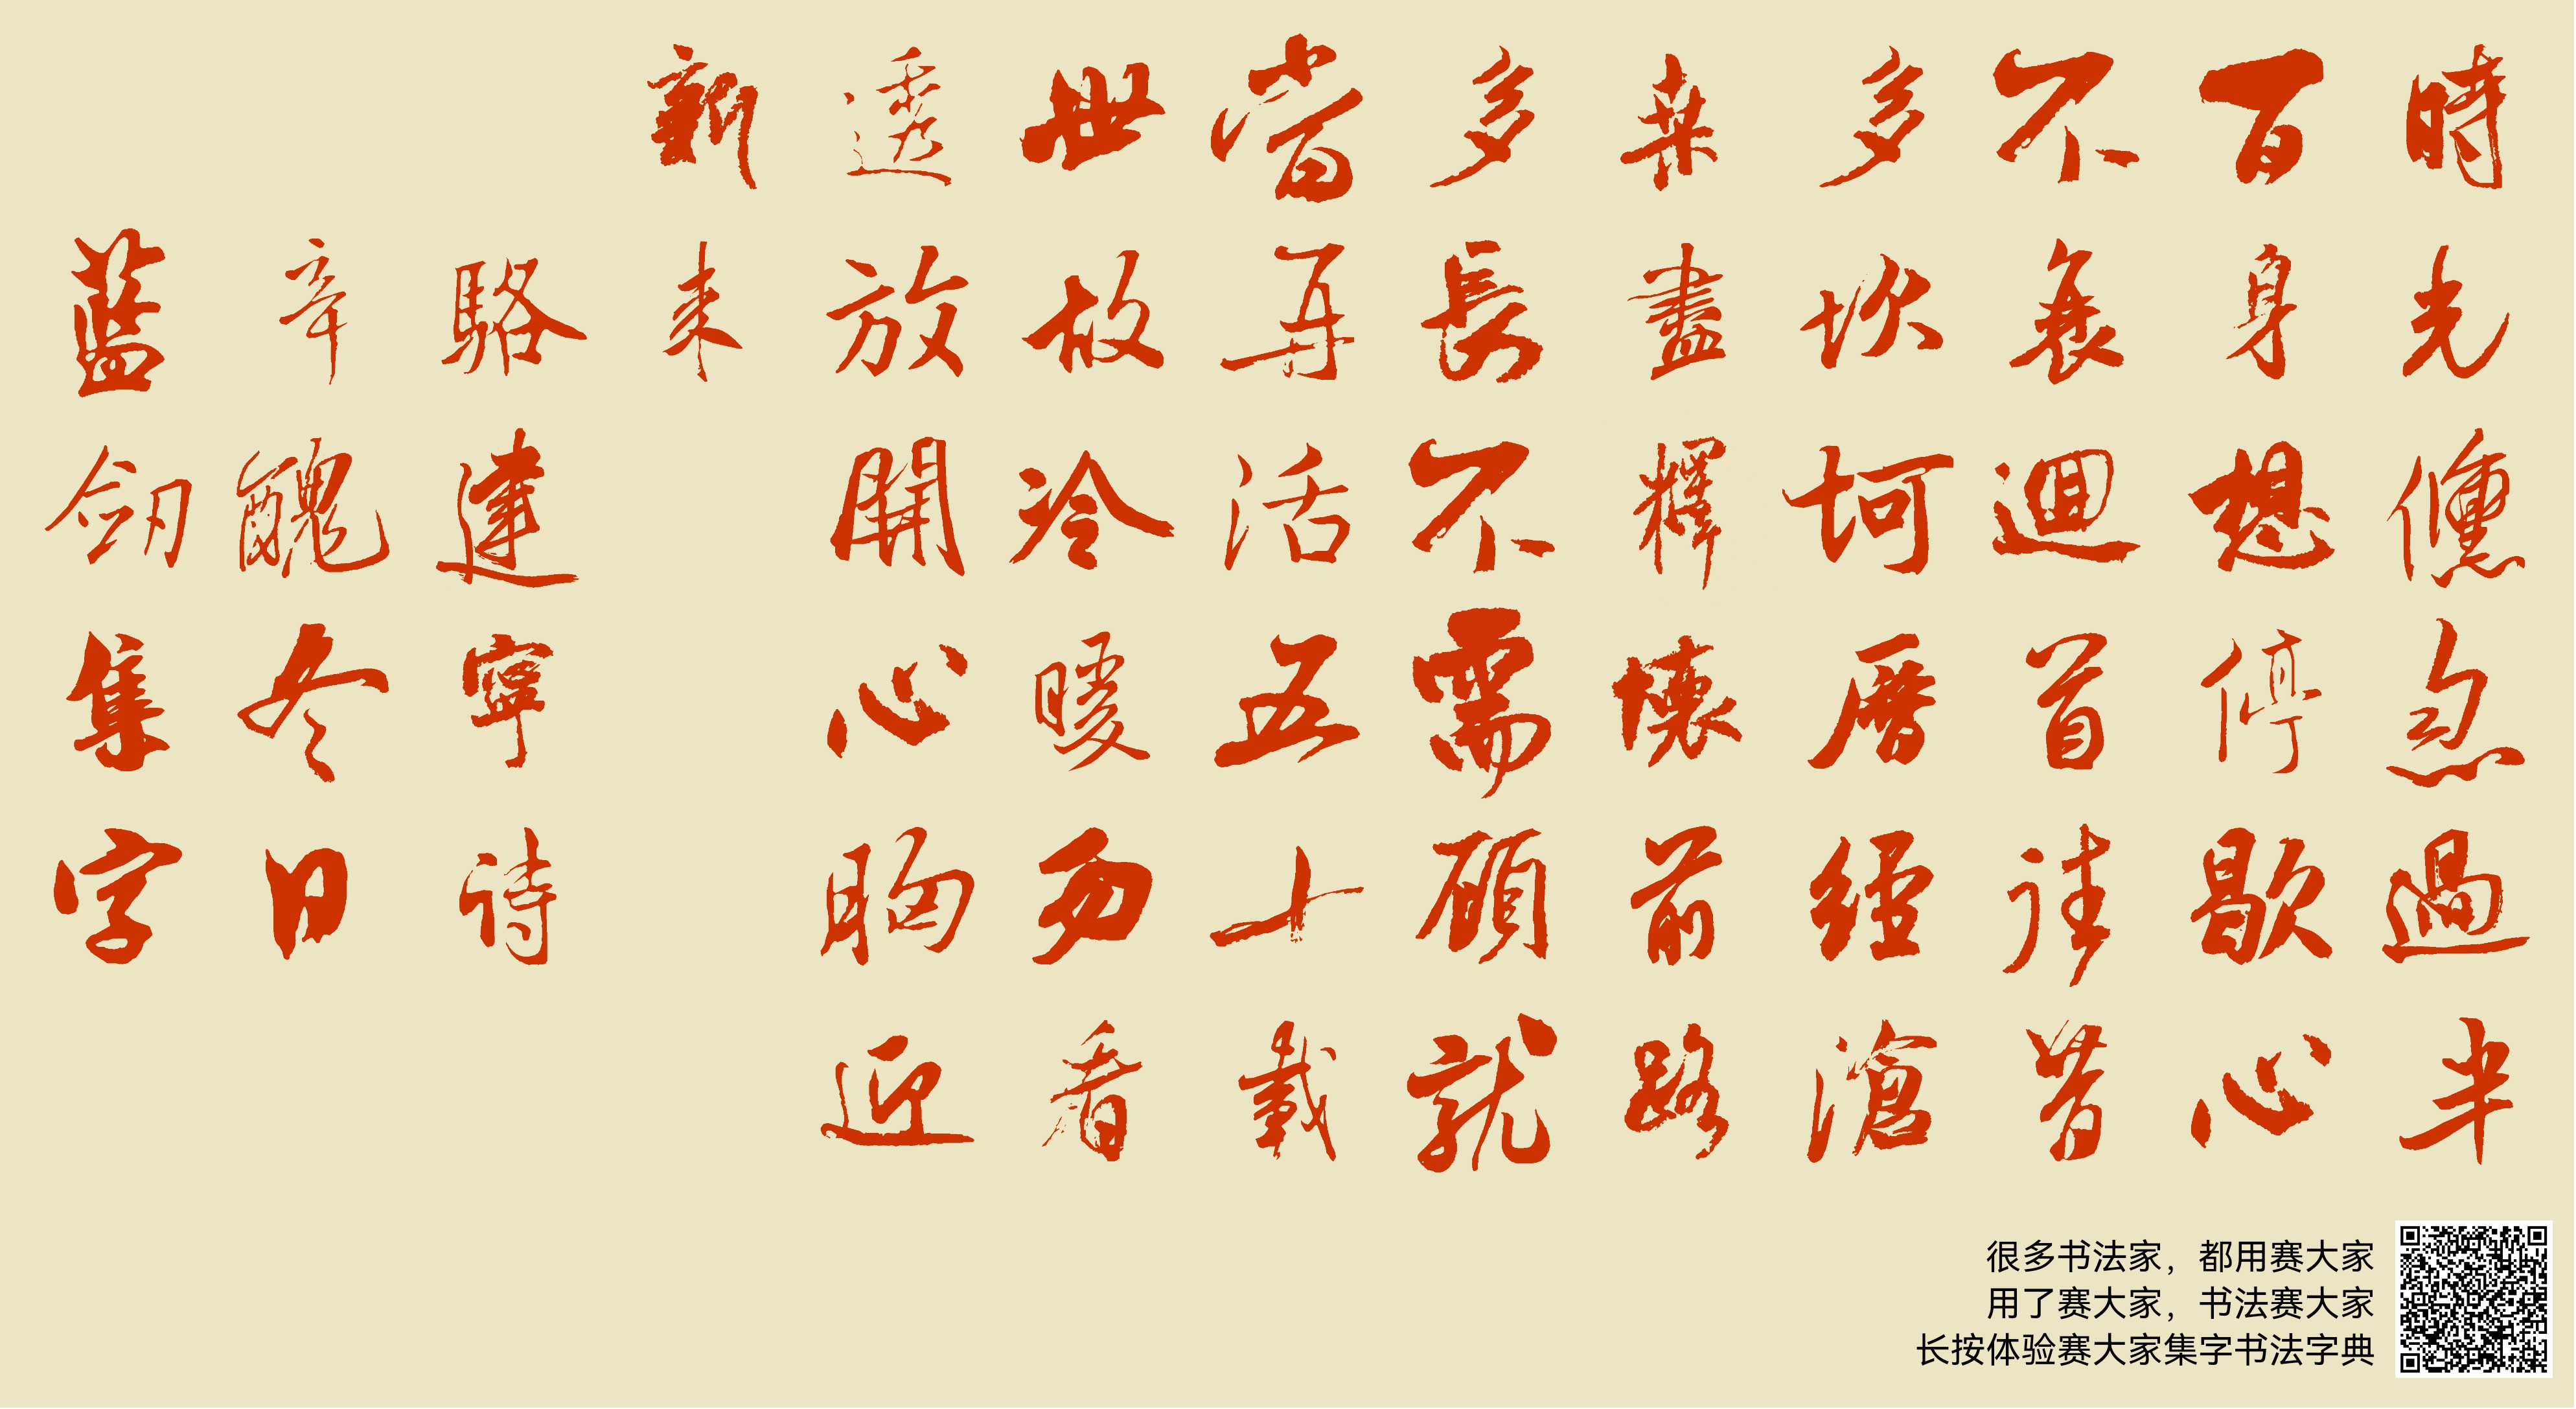 時光儵忽過半
百身想停歇心
不衰迴首往昔
多坎坷曆經滄
桑盡釋懷前路
多長不需顧就
當再活五十載
世故冷暖勿看
透放開心胸迎
新來
駱建寧诗
辛醜冬日
藍劍集字
很多书法家，都用赛大家
用了赛大家，书法赛大家
长按体验赛大家集字书法字典